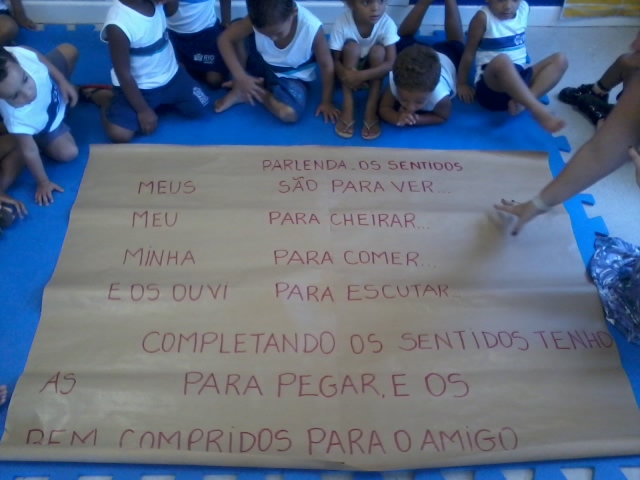 PARLENDA - OS SENTIDOS
MEUS SÃO PARA VER...
MEU PARA CHEIRAR...
MINHA PARA COMER...
E OS OUVI PARA ESCUTAR
COMPLETANDO OS SENTIDOS TENHO
AS PARA PEGAR, E OS
BEM COMPRIDOS PARA O AMIGO
RIO